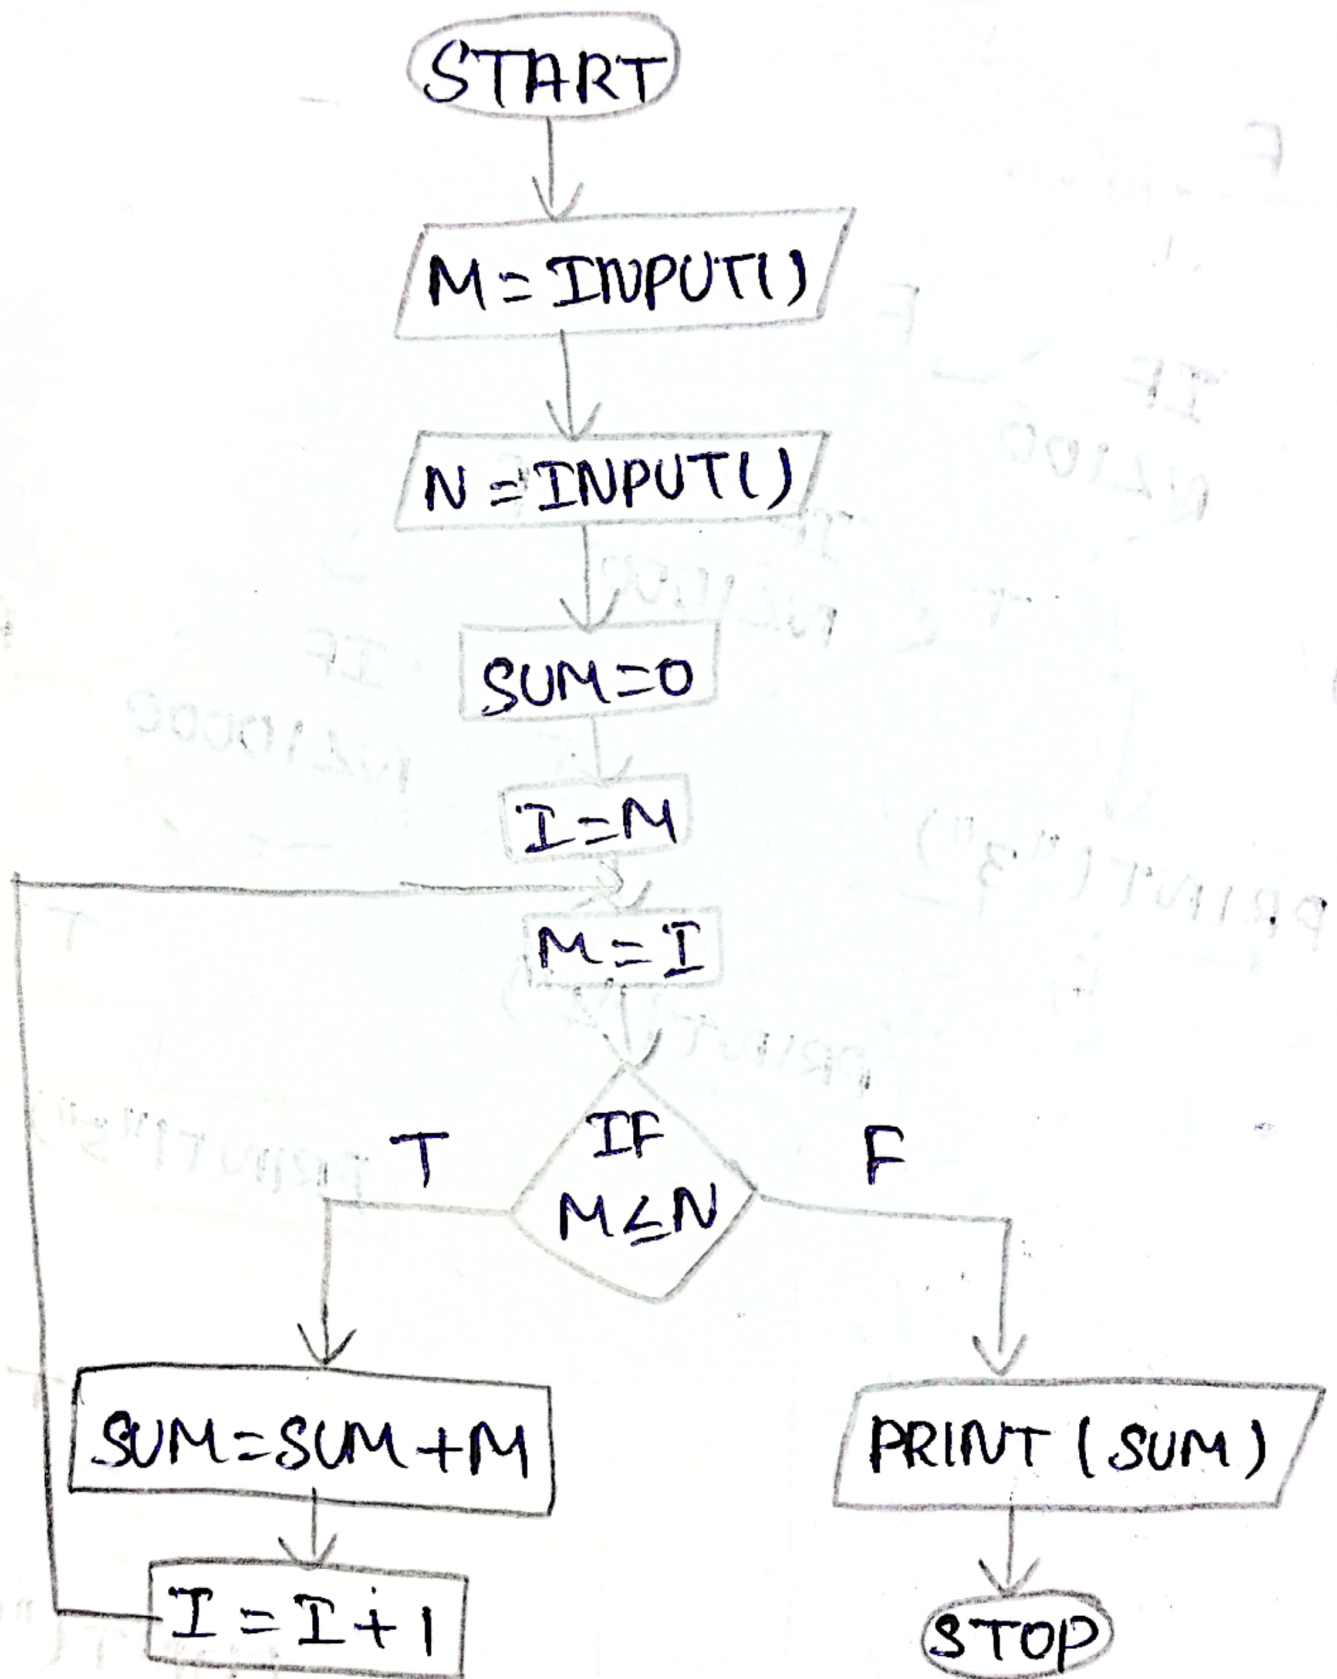 START
M=INPUT()
N=INPUT()
SUM=0
I=M
M=I
IF
M≤N
T
F
SUM=SUM+M
PRINT(SUM)
I=I+1
STOP